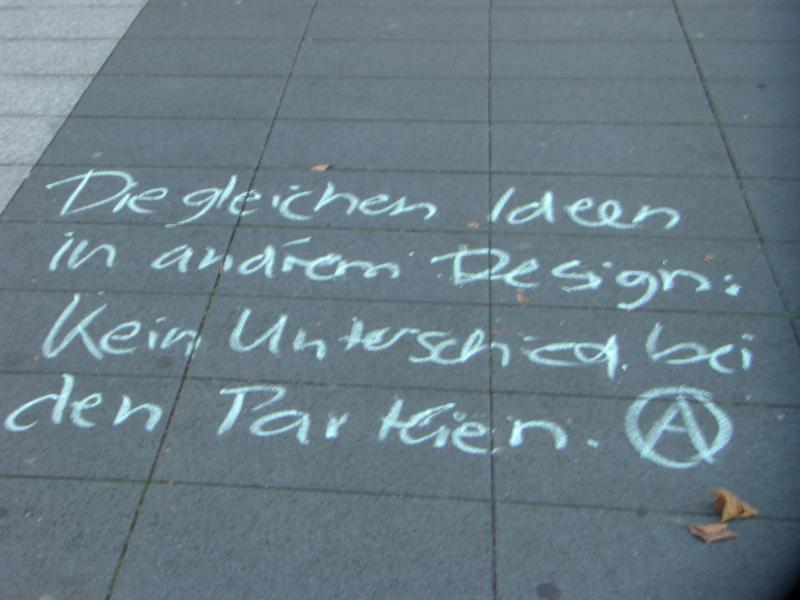 Die gleichen Ideen
in andrem Design:
Kein Unterschied bei
den Partien. Ⓐ